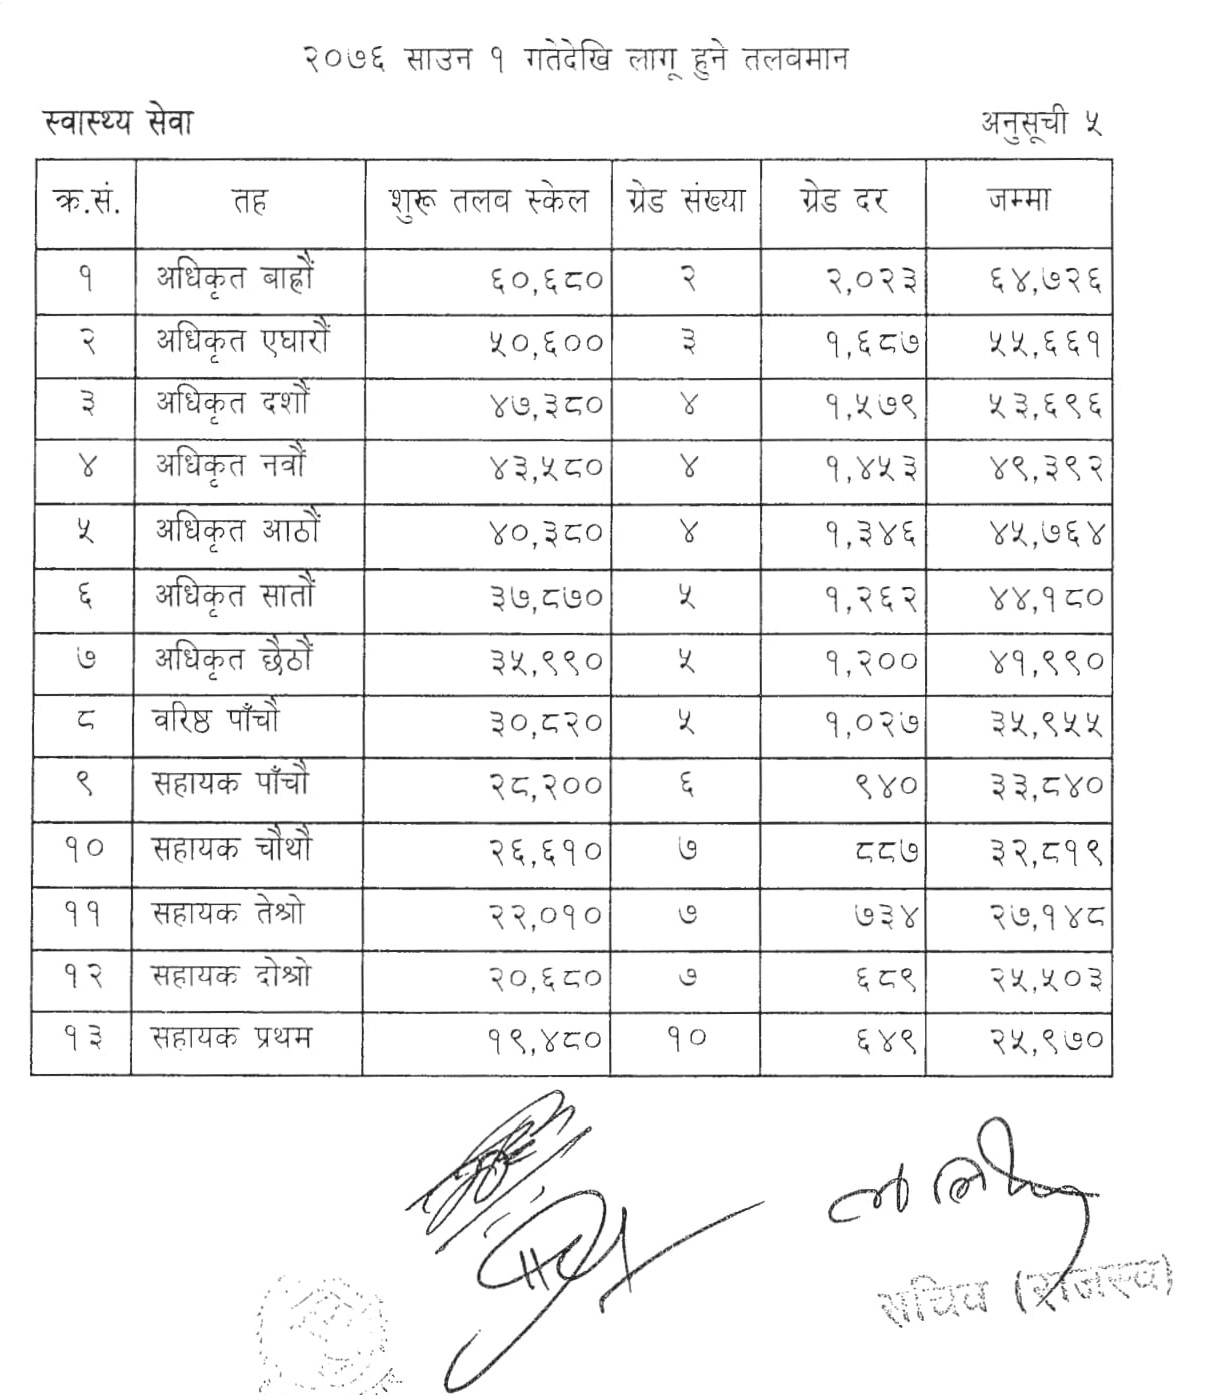 २०७६ साउन १ गतेदेखि लागू हुने तलवमान
स्वास्थ्य सेवा अनुसूची ५
क्र.सं. तह शुरू तलव स्केल ग्रेड संख्या ग्रेड दर जम्मा
१ अधिकृत बाह्रौं ६०,६८० २ २,०२३ ६४,७२६
२ अधिकृत एघारौं ५०,६०० ३ १,६८७ ५५,६६१
३ अधिकृत दशौं ४७,३८० ४ १,५७९ ५३,६९६
४ अधिकृत नवौं ४३,५८० ४ १,४५३ ४९,३९२
५ अधिकृत आठौं ४०,३८० ४ १,३४६ ४५,७६४
६ अधिकृत सातौं ३७,८७० ५ १,२६२ ४४,१८०
७ अधिकृत छैठौं ३५,९९० ५ १,२०० ४१,९९०
८ वरिष्ठ पाँचौ ३०,८२० ५ १,०२७ ३५,९५५
९ सहायक पाँचौ २८,२०० ६ ९४० ३३,८४०
१० सहायक चौथौ २६,६१० ७ ८८७ ३२,८१९
११ सहायक तेश्रो २२,०१० ७ ७३४ २७,१४८
१२ सहायक दोश्रो २०,६८० ७ ६८९ २५,५०३
१३ सहायक प्रथम १९,४८० १० ६४९ २५,९७०
सचिव (राजस्व)